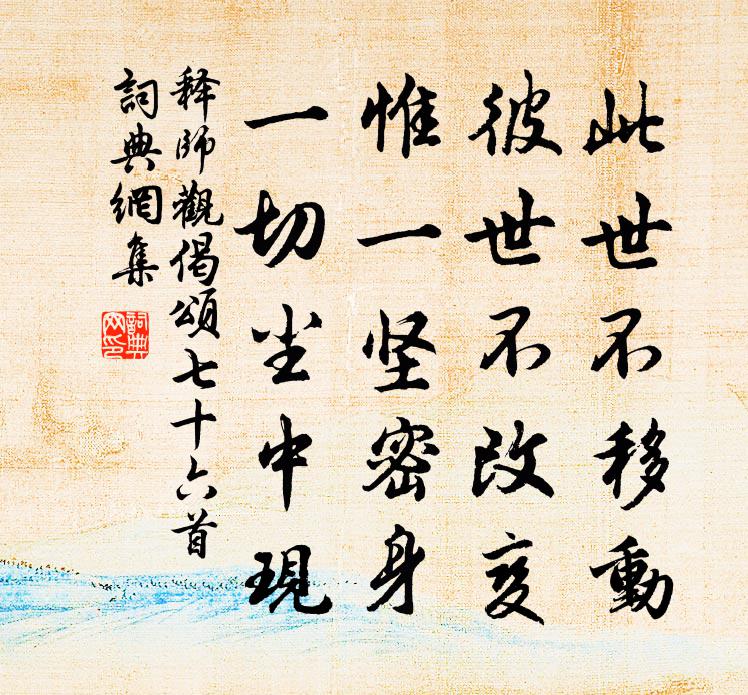 此世不移動
彼世不改变
惟一坚密身
一切尘中現
释師觀偈頌七十六首
詞典網集
詞典網印